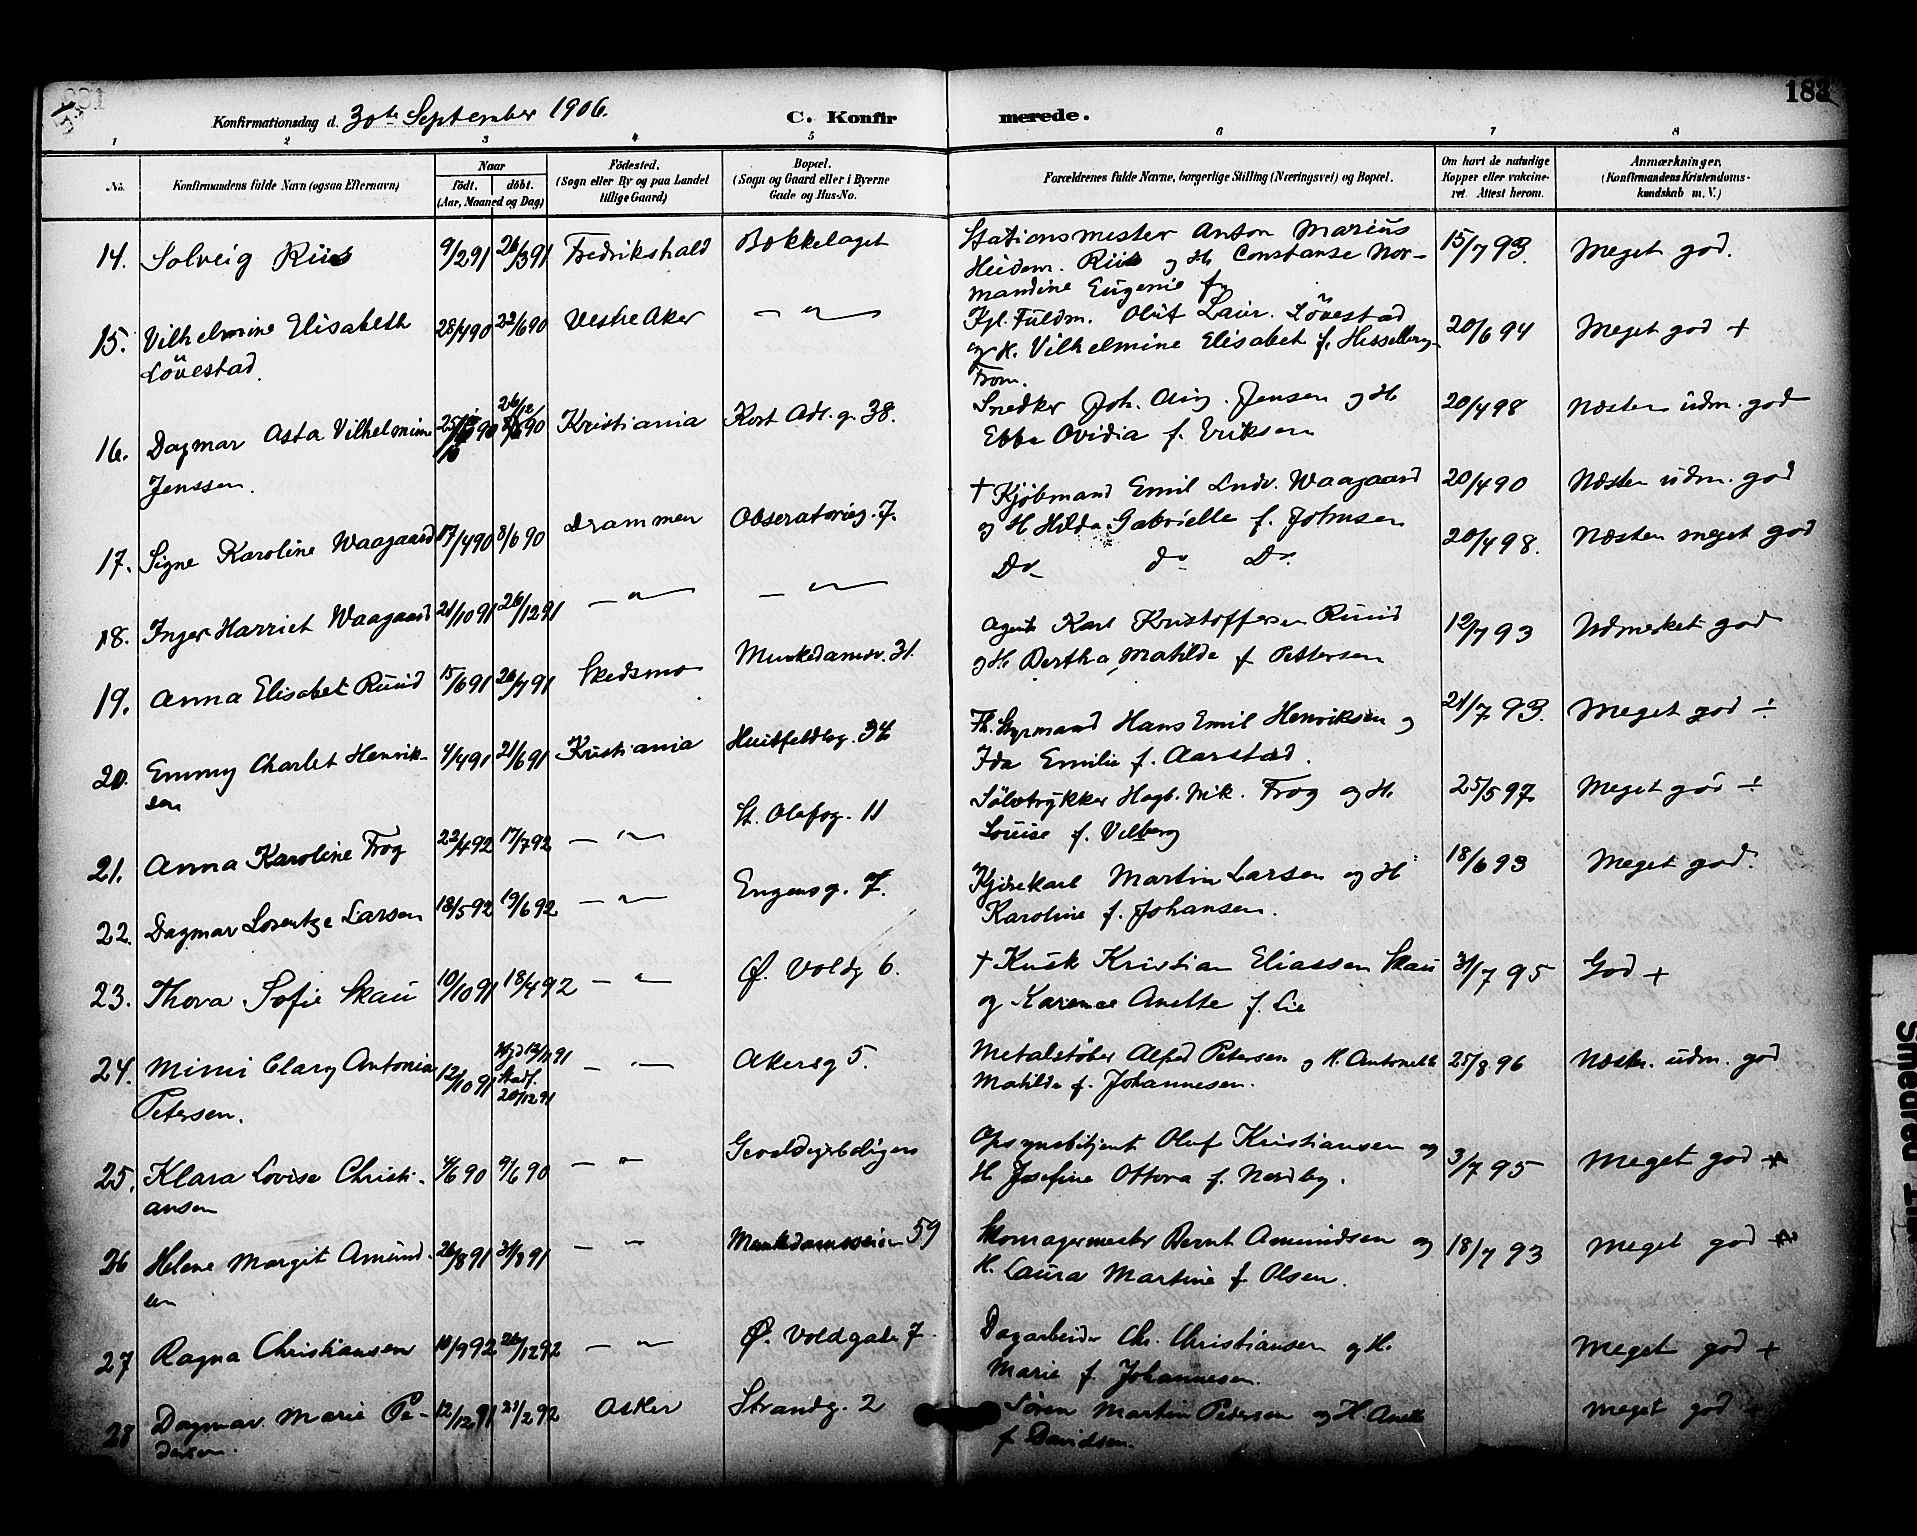 183
Konfirmationsdag d. 30te September 1906.
C. Konfirmerede.
1 2 3 4 5 6 7 8
No.
Konfirmandens fulde Navn (ogsaa Efternavn)
Naar
født. døbt.
(Aar, Maaned og Dag)
Fødested.
(Sogn eller By og paa Landet
tillige Gaard)
Bopæl.
(Sogn og Gaard eller i Byerne
Gade og Hus-No.
Forældrenes fulde Navne, borgerlige Stilling (Næringsvei) og Bopæl.
Om havt de naturlige
Kopper eller vakcine-
ret. Attest herom.
Anmærkninger,
(Konfirmandens Kristendoms-
kundskab m. V.)
14. Solveig Riis 9/2 91 26/3 91 Fredrikshald Bækkelaget
Stationsmester Anton Marius
Heidem. Riis og H. Constanse Nor-
mandine Eugenie f.
15/7 93. Meget god.
15. Vilhelmine Elisabeth
Løvestad.
28/4 90 22/6 90 Vestre Aker — " —
Kgl. Fuldm. Oluf Laur. Løvestad
og H. Vilhelmine Elisabet f. Hesselberg-
From.
20/6 94 Meget god +
16. Dagmar Asta Vilhelmine
Jenssen.
26/12 90 Kristiania Kort Adl. g. 38.
Snedker Joh. Aug. Jensen og H.
Ebba Ovidia f. Eriksen
20/4 98 Næsten udm. god
17. Signe Karoline Waagaard 17/4 90 8/6 90 Drammen Obseratorieg. 7.
† Kjøbmand Emil Ludv. Waagaard
og H. Hilda Gabrielle f. Johnsen
20/4 90 Næsten udm. god
18. Inger Harriet Waagaard 21/10 91 26/12 91 — " — — " —
Do do Do.
20/4 98. Næsten meget god
19. Anna Elisabet Ruud 15/6 91 26/7 91 Skedsmo Munkedamsv. 31.
Agent Karl Kristoffersen Ruud
og H. Bertha Matilde f. Pettersen
12/7 93 Udmerket god
20. Emmy Charlot Henrik-
sen
4/4 91 21/6 91 Kristiania Huitfeldtsg. 34
Fh. Styrmand Hans Emil Henriksen og
Ida Emilie f. Aarstad.
21/7 93. Meget god ÷
21. Anna Karoline Frog 22/4 92 17/7 92 — " — St. Olafsg. 11
Sølvtrykker Hagb. Nik. Frog og H.
Louise f. Velberg
25/5 97. Meget god ÷
22. Dagmar Lorentze Larsen 18/5 92 19/6 92 — " — Engensg. 7.
Kjørekarl Martin Larsen og H
Karoline f. Johansen.
18/6 93 Meget god.
23. Thora Sofie Skau 10/10 91 18/4 92 — " — Ø. Voldg 6.
† Kusk Kristian Eliassen Skau
og Karense Anette f. Lie
31/7 95 God +
24. Mimi Clary Antonia
Petersen.
12/10 91 Hjd 12/11 91
Stadf.
20/12 91
— " — Akersg 5.
Metalstøber Alfred Petersen og H. Antonette
Matilde f. Johannesen.
25/8 96 Næst. udm. god
25. Klara Lovise Christi-
ansen
4/6 90 9/6 90 — " —
Opsynsbetjent Oluf Kristiansen og
H. Josefine Ottora f. Nordby.
3/7 95 Meget god +
26 Helene Margit Amund-
sen
26/8 91 31/8 91 — " — Munkedamsveien 59
Skomagermester Bernt Amundsen og
H. Laura Martine f. Olsen.
18/7 93 Meget god +
27 Ragna Christiansen 10/9 92 26/12 92 — " — Ø. Voldgate 7
Dagarbeider Chr. Christiansen og H.
Marie f. Johannesen.
Meget god +
28 Dagmar Marie Pe-
dersen.
12/12 91 21/2 92 Asker Strandg. 2
Søren Martin Pedersen og H. Anette
f. Davidsen.
Meget god +